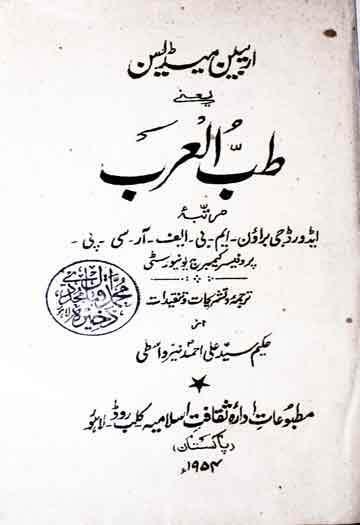 اریبین میڈیسن
یعنے
طبّ العرب
مرتبہٴ
ایڈورڈ جی براؤن - ایم - بی - ایف - آر - سی - پی -
پروفیسر کیمبرج یونیورسٹی
ترجمہ و تشریحات و تنقیدات
از
حکیم سید علی احمد نیر واسطی
مطبوعاتِ ادارۂ ثقافتِ اسلامیہ کلب روڈ - لاہور
(پاکستان)
۱۹۵۴ء
محمد اقبال مجددی
ذخیرہ